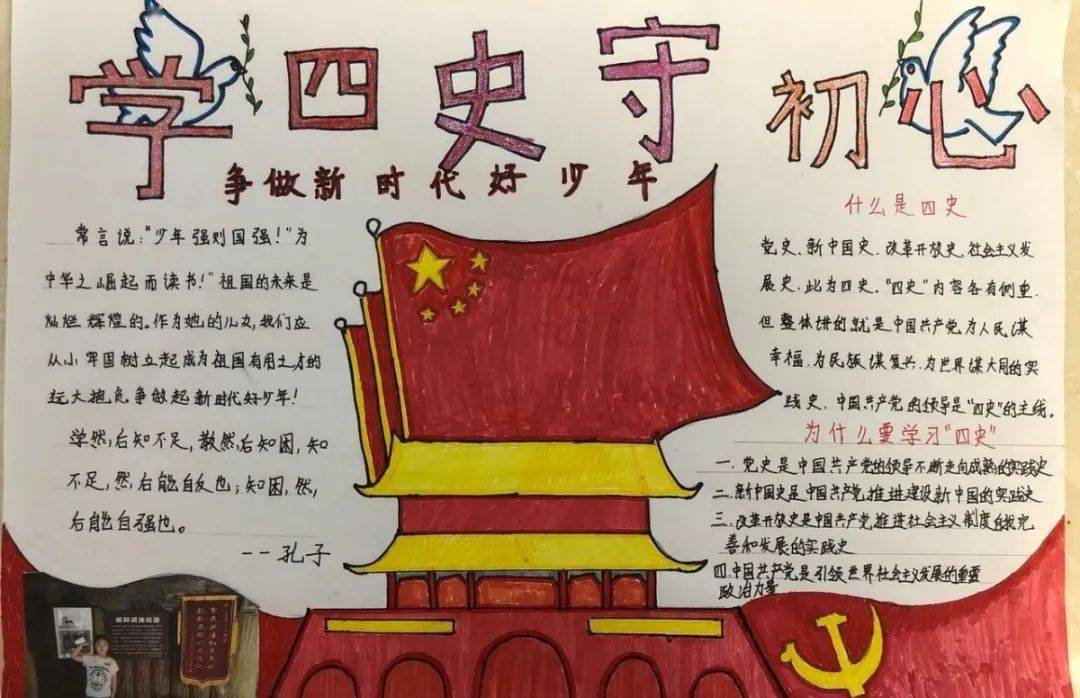 学四史守初心
争做新时代好少年
常言说：“少年强则国强！”为
中华之崛起而读书！”祖国的未来是
灿烂辉煌的。作为她的儿女，我们应
从小牢固树立起成为祖国有用之才的
远大抱负争做起新时代好少年！
学然，后知不足，教然，后知困，知
不足，然，后能自反也；知困，然，
后能自强也。
--孔子
什么是四史
党史、新中国史、改革开放史、社会主义发
展史，此为四史。“四史”内容各有侧重，
但整体讲的就是中国共产党为人民谋
幸福、为民族谋复兴、为世界谋大同的实
践史，中国共产党的领导是“四史”的主线。
为什么要学习“四史”
一．党史是中国共产党的领导不断走向成熟的实践史
二．新中国史是中国共产党推进建设新中国的实践史
三．改革开放史是中国共产党推进社会主义制度自我完
善和发展的实践史
四．中国共产党是引领世界社会主义发展的重要
政治力量